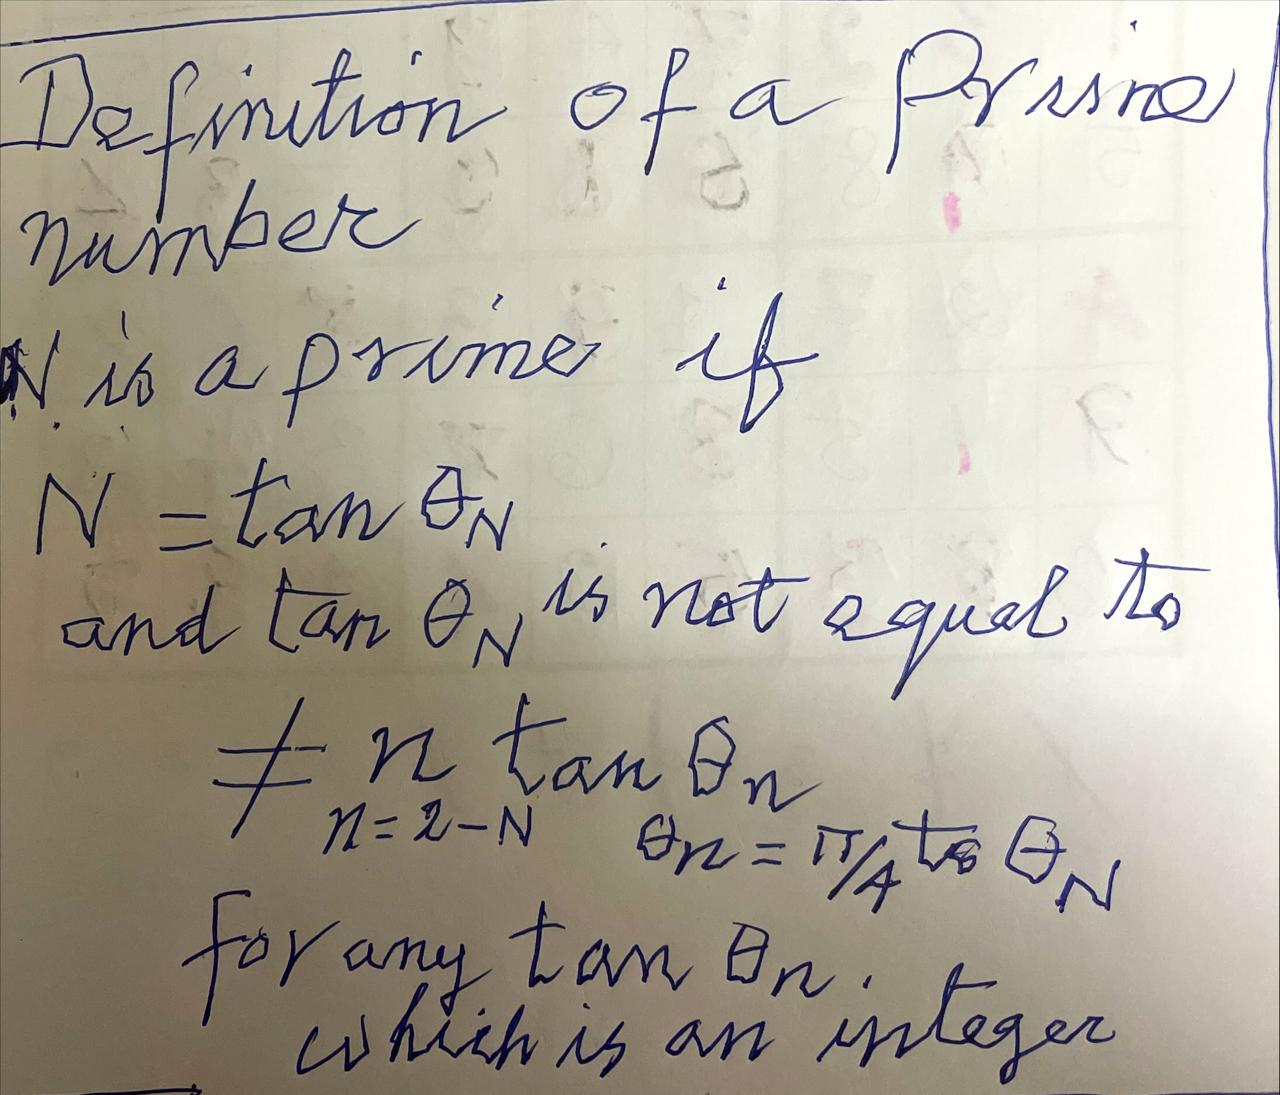 Definition of a Prime
number
N is a prime if
N = tan θN
and tan θN is not equal to
≠ n tan θn
n=2-N θn = π/4 to θN
for any tan θn.
which is an integer